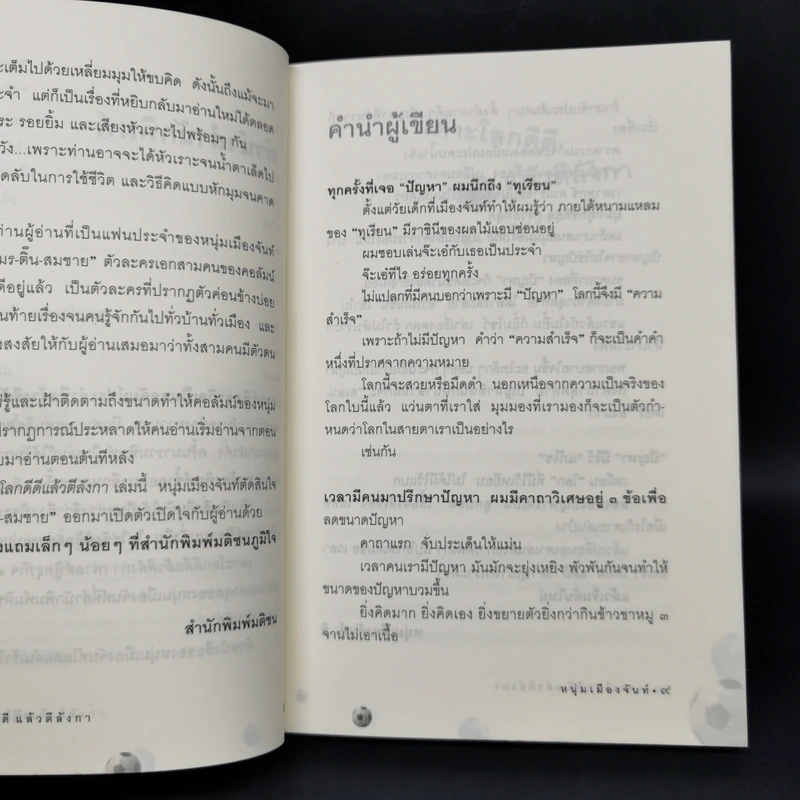 ะเต็มไปด้วยเหลี่ยมมุมให้ขบคิด ดังนั้นถึงแม้จะมา
ะจำ แต่ก็เป็นเรื่องที่หยิบกลับมาอ่านใหม่ได้ตลอด
ระ รอยยิ้ม และเสียงหัวเราะไปพร้อมๆ กัน
วัง...เพราะท่านอาจจะได้หัวเราะจนน้ำตาเล็ดไป
ดลับในการใช้ชีวิต และวิธีคิดแบบหักมุมจนคาด
ท่านผู้อ่านที่เป็นแฟนประจำของหนุ่มเมืองจันท์
มร-ติ๊น-สมชาย” ตัวละครเอกสามคนของคอลัมน์
ดีอยู่แล้ว เป็นตัวละครที่ปรากฏตัวค่อนข้างบ่อย
นท้ายเรื่องจนคนรู้จักกันไปทั่วบ้านทั่วเมือง และ
งสงสัยให้กับผู้อ่านเสมอมาว่าทั้งสามคนมีตัวตน
รู้และเฝ้าติดตามถึงขนาดทำให้คอลัมน์ของหนุ่ม
ปรากฏการณ์ประหลาดให้คนอ่านเริ่มอ่านจากตอน
บมาอ่านตอนต้นทีหลัง
โลกดีดีแล้วตีลังกา เล่มนี้ หนุ่มเมืองจันท์ตัดสินใจ
-สมชาย” ออกมาเปิดตัวเปิดใจกับผู้อ่านด้วย
งแถมเล็กๆ น้อยๆ ที่สำนักพิมพ์มติชนภูมิใจ
สำนักพิมพ์มติชน
ดี แล้วตีลังกา
คำนำผู้เขียน
ทุกครั้งที่เจอ “ปัญหา” ผมนึกถึง “ทุเรียน”
ตั้งแต่วัยเด็กที่เมืองจันท์ทำให้ผมรู้ว่า ภายใต้หนามแหลม
ของ “ทุเรียน” มีราชินีของผลไม้แอบซ่อนอยู่
ผมชอบเล่นจ๊ะเอ๋กับเธอเป็นประจำ
จ๊ะเอ๋ทีไร อร่อยทุกครั้ง
ไม่แปลกที่มีคนบอกว่าเพราะมี “ปัญหา” โลกนี้จึงมี “ความ
สำเร็จ”
เพราะถ้าไม่มีปัญหา คำว่า “ความสำเร็จ” ก็จะเป็นคำคำ
หนึ่งที่ปราศจากความหมาย
โลกนี้จะสวยหรือมืดดำ นอกเหนือจากความเป็นจริงของ
โลกใบนี้แล้ว แว่นตาที่เราใส่ มุมมองที่เรามองก็จะเป็นตัวกำ-
หนดว่าโลกในสายตาเราเป็นอย่างไร
เช่นกัน
เวลามีคนมาปรึกษาปัญหา ผมมีคาถาวิเศษอยู่ ๓ ข้อเพื่อ
ลดขนาดปัญหา
คาถาแรก จับประเด็นให้แม่น
เวลาคนเรามีปัญหา มันมักจะยุ่งเหยิง พัวพันกันจนทำให้
ขนาดของปัญหาบวมขึ้น
ยิ่งคิดมาก ยิ่งคิดเอง ยิ่งขยายตัวยิ่งกว่ากินข้าวขาหมู ๓
จานไม่เอาเนื้อ
หนุ่มเมืองจันท์ • ๙